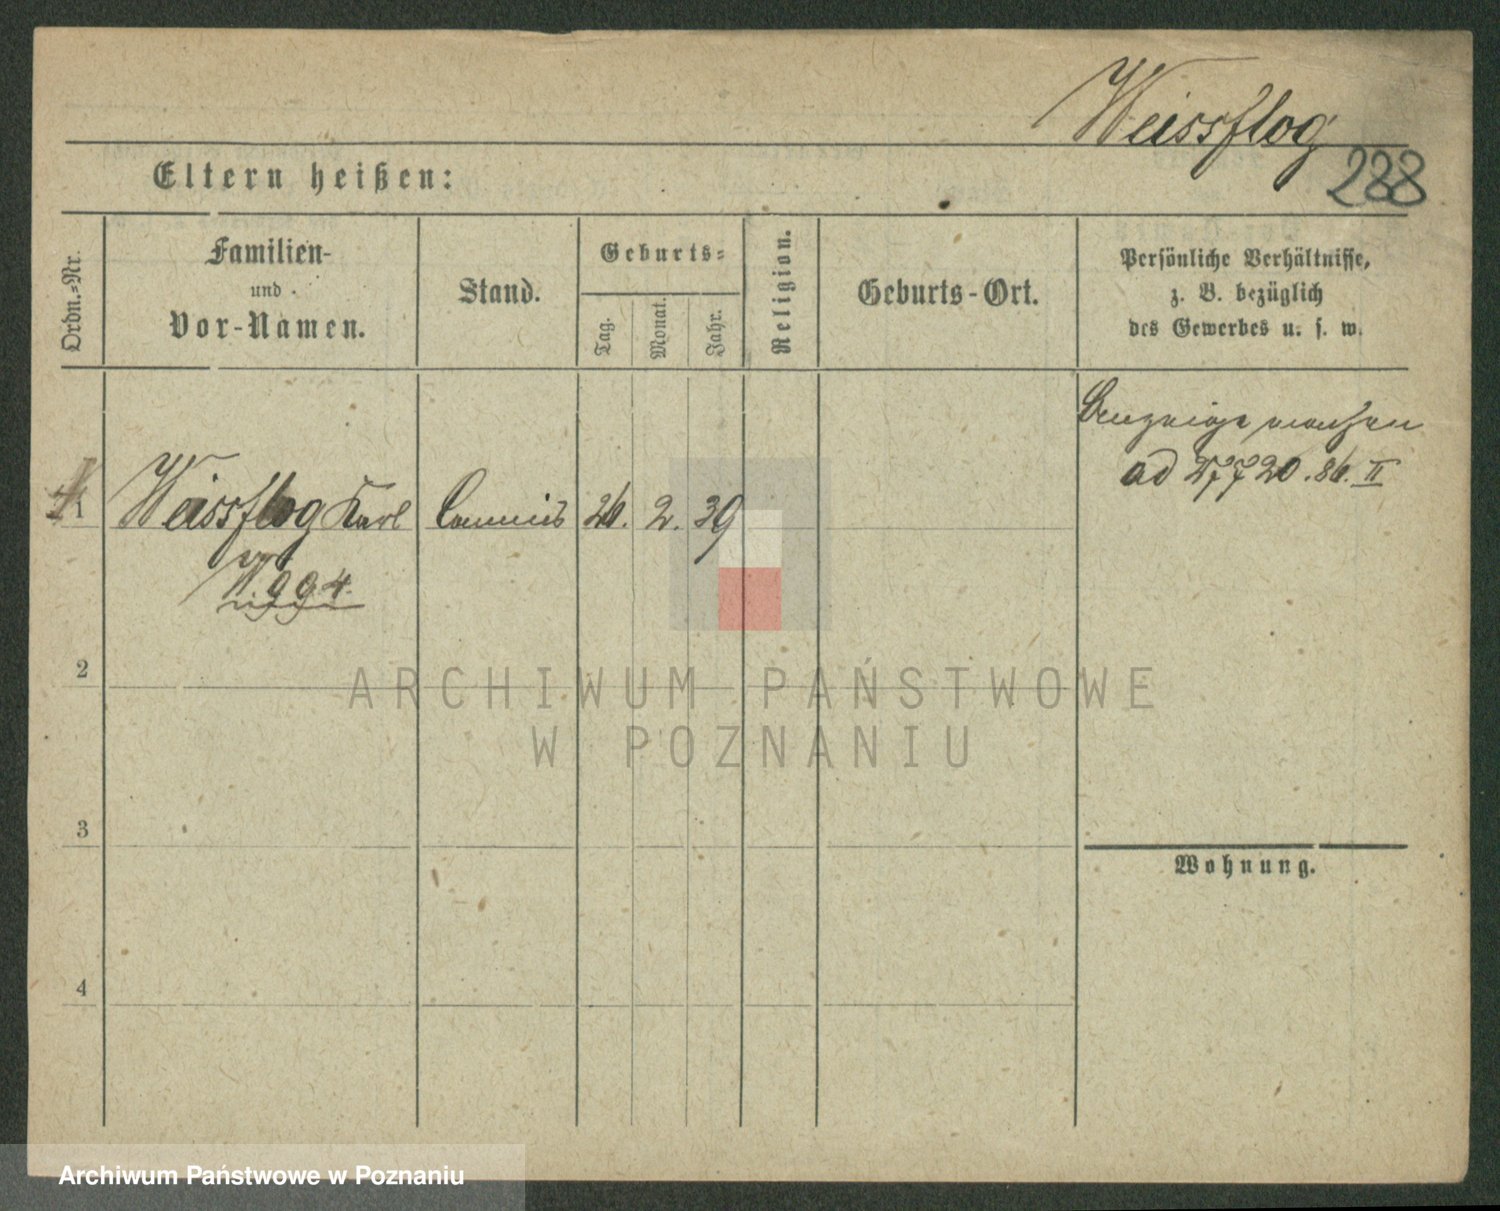 Weissflog
288
Eltern heißen:
Ordn.=Nr.
Familien-
und
Vor-Namen.
Stand.
Geburts=
Tag.
Monat.
Jahr.
Religion.
Geburts-Ort.
Persönliche Verhältnisse,
z. B. bezüglich
des Gewerbes u. s. w.
machen
ad 20.86. II
1
Weissflog Karl
Commis
26. 2. 39
W.994
2
3
4
Wohnung.
ARCHIWUM PAŃSTWOWE
W POZNANIU
Archiwum Państwowe w Poznaniu